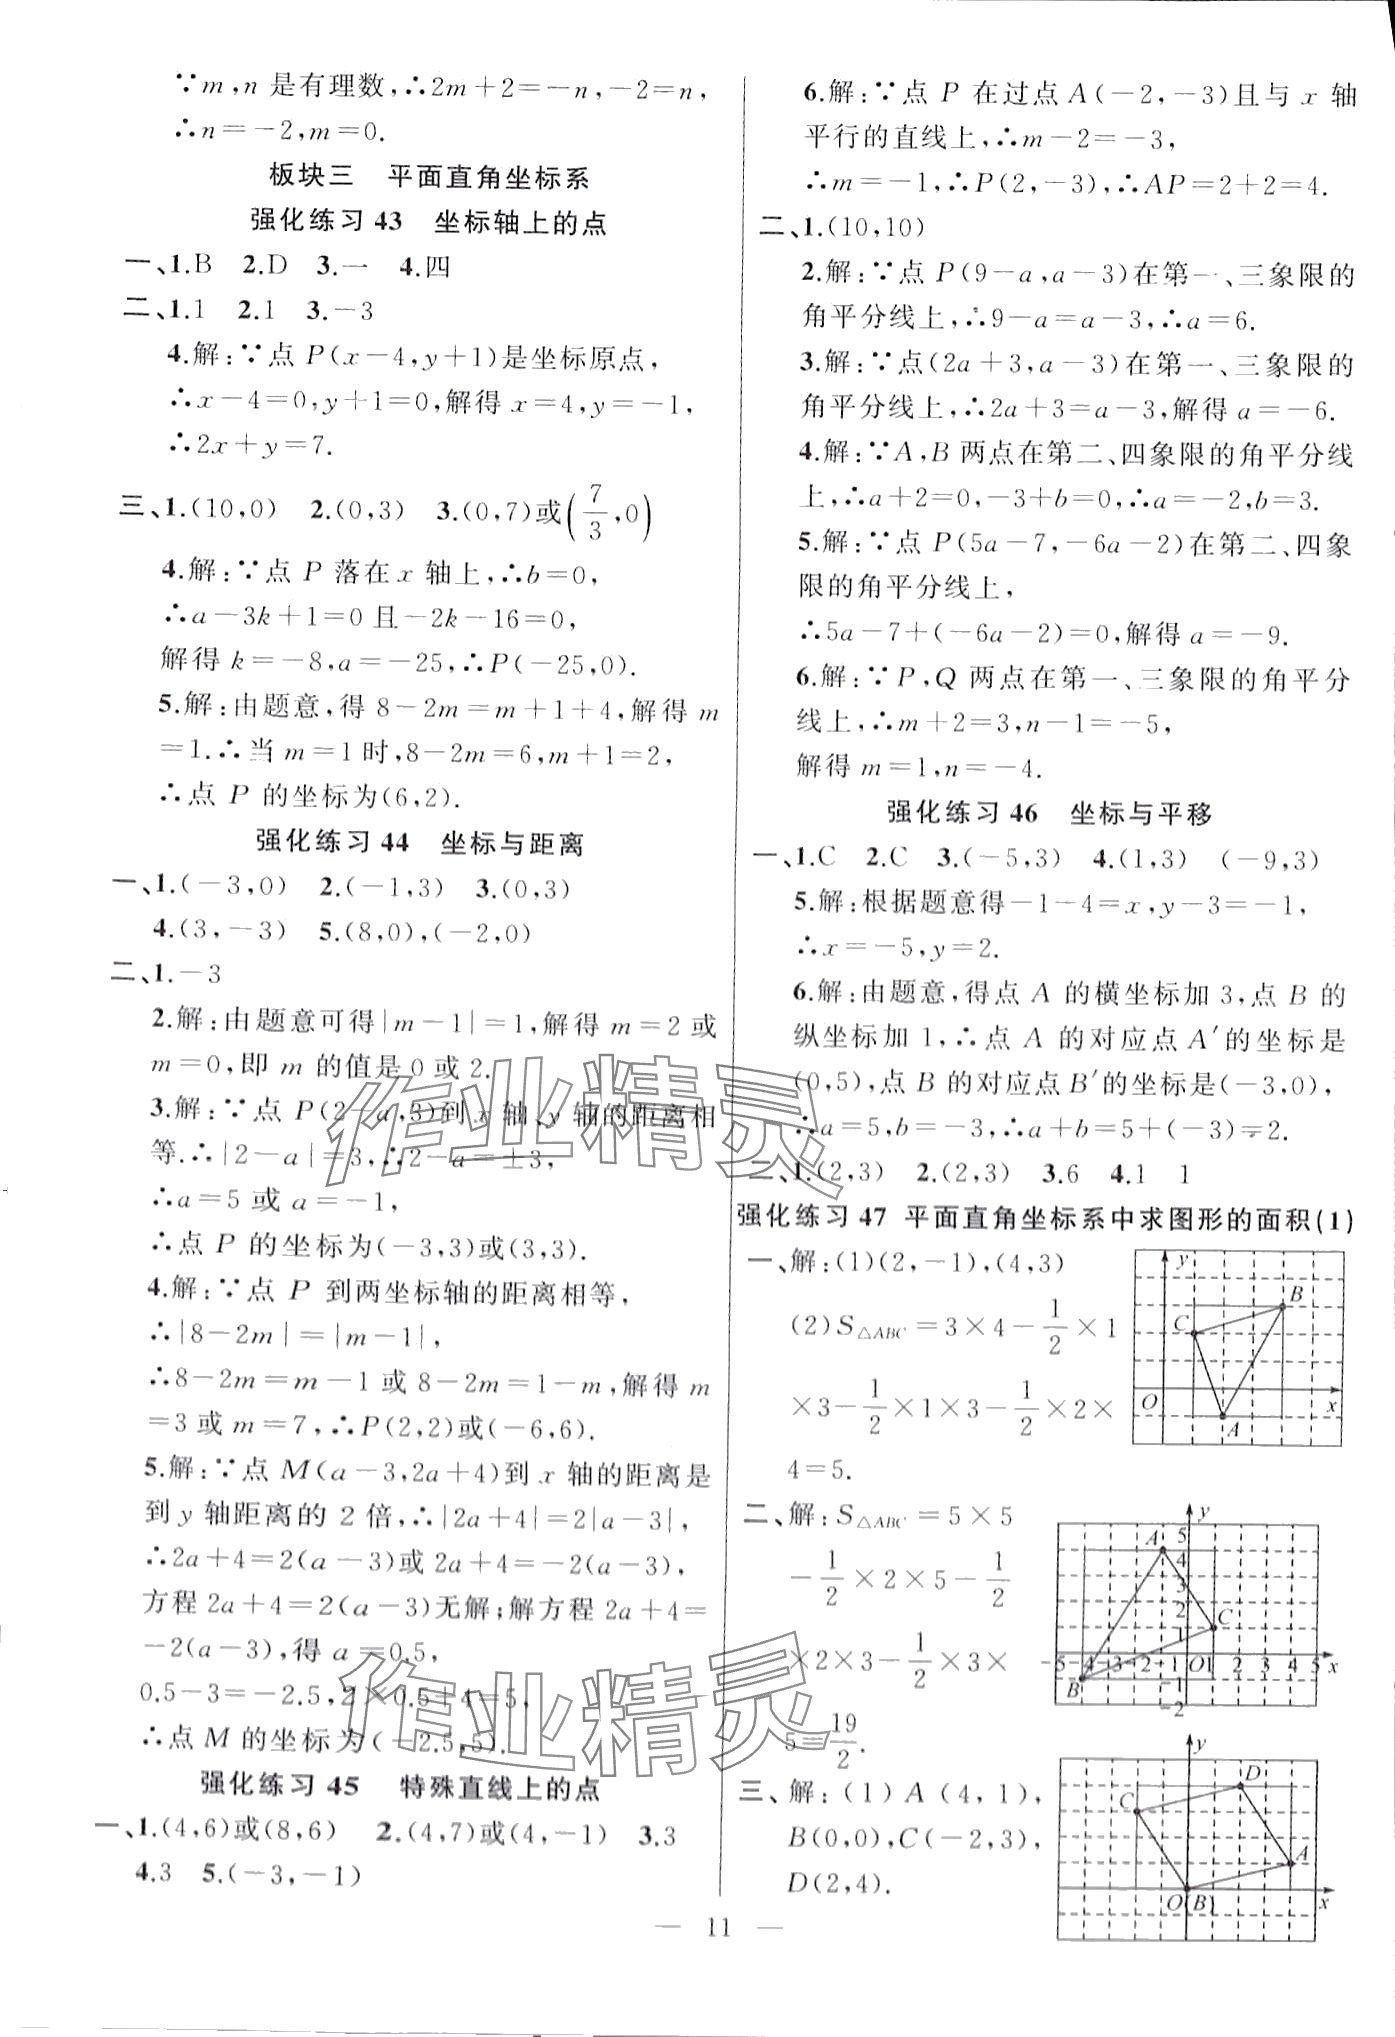 ∵m,n 是有理数,∴2m+2=-n,-2=n,
∴n=-2,m=0.
板块三 平面直角坐标系
强化练习 43 坐标轴上的点
一、1.B 2.D 3.一 4.四
二、1.1 2.1 3.-3
4.解:∵点 P(x-4,y+1)是坐标原点,
∴x-4=0,y+1=0,解得 x=4,y=-1,
∴2x+y=7.
三、1.(10,0) 2.(0,3) 3.(0,7)或(7/3,0)
4.解:∵点 P 落在 x 轴上,∴b=0,
∴a-3k+1=0 且-2k-16=0,
解得 k=-8,a=-25,∴P(-25,0).
5.解:由题意,得 8-2m=m+1+4,解得 m
=1.∴当 m=1 时,8-2m=6,m+1=2,
∴点 P 的坐标为(6,2).
强化练习 44 坐标与距离
一、1.(-3,0) 2.(-1,3) 3.(0,3)
4.(3,-3) 5.(8,0),(-2,0)
二、1.-3
2.解:由题意可得|m-1|=1,解得 m=2 或
m=0,即 m 的值是 0 或 2.
3.解:∵点 P(2-a,3)到 x 轴、y 轴的距离相
等.∴|2-a|=3,∴2-a=±3,
∴a=5 或 a=-1,
∴点 P 的坐标为(-3,3)或(3,3).
4.解:∵点 P 到两坐标轴的距离相等,
∴|8-2m|=|m-1|,
∴8-2m=m-1 或 8-2m=1-m,解得 m
=3 或 m=7,∴P(2,2)或(-6,6).
5.解:∵点 M(a-3,2a+4)到 x 轴的距离是
到 y 轴距离的 2 倍,∴|2a+4|=2|a-3|,
∴2a+4=2(a-3)或 2a+4=-2(a-3),
方程 2a+4=2(a-3)无解;解方程 2a+4=
-2(a-3),得 a=0.5,
0.5-3=-2.5,2×0.5+4=5,
∴点 M 的坐标为(-2.5,5).
强化练习 45 特殊直线上的点
一、1.(4,6)或(8,6) 2.(4,7)或(4,-1) 3.3
4.3 5.(-3,-1)
6.解:∵点 P 在过点 A(-2,-3)且与 x 轴
平行的直线上,∴m-2=-3,
∴m=-1,∴P(2,-3),∴AP=2+2=4.
二、1.(10,10)
2.解:∵点 P(9-a,a-3)在第一、三象限的
角平分线上,∴9-a=a-3,∴a=6.
3.解:∵点(2a+3,a-3)在第一、三象限的
角平分线上,∴2a+3=a-3,解得 a=-6.
4.解:∵A,B 两点在第二、四象限的角平分线
上,∴a+2=0,-3+b=0,∴a=-2,b=3.
5.解:∵点 P(5a-7,-6a-2)在第二、四象
限的角平分线上,
∴5a-7+(-6a-2)=0,解得 a=-9.
6.解:∵P,Q 两点在第一、三象限的角平分
线上,∴m+2=3,n-1=-5,
解得 m=1,n=-4.
强化练习 46 坐标与平移
一、1.C 2.C 3.(-5,3) 4.(1,3) (-9,3)
5.解:根据题意得-1-4=x,y-3=-1,
∴x=-5,y=2.
6.解:由题意,得点 A 的横坐标加 3,点 B 的
纵坐标加 1,∴点 A 的对应点 A′的坐标是
(0,5),点 B 的对应点B′的坐标是(-3,0),
∴a=5,b=-3,∴a+b=5+(-3)=2.
二、1.(2,3) 2.(2,3) 3.6 4.1 1
强化练习 47 平面直角坐标系中求图形的面积(1)
一、解:(1)(2,-1),(4,3)
(2)S△ABC=3×4-1/2×1
×3-1/2×1×3-1/2×2×
4=5.
y B C O A x
二、解:S△ABC=5×5
-1/2×2×5-1/2
×2×3-1/2×3×
5=19/2.
y A 5 4 3 2 1 C
-5-4-3-2-1 O1 2 3 4 5 x
B -1 -2
三、解:(1)A(4,1),
B(0,0),C(-2,3),
D(2,4).
y D C A O(B) x
— 11 —
作业精灵
作业精灵